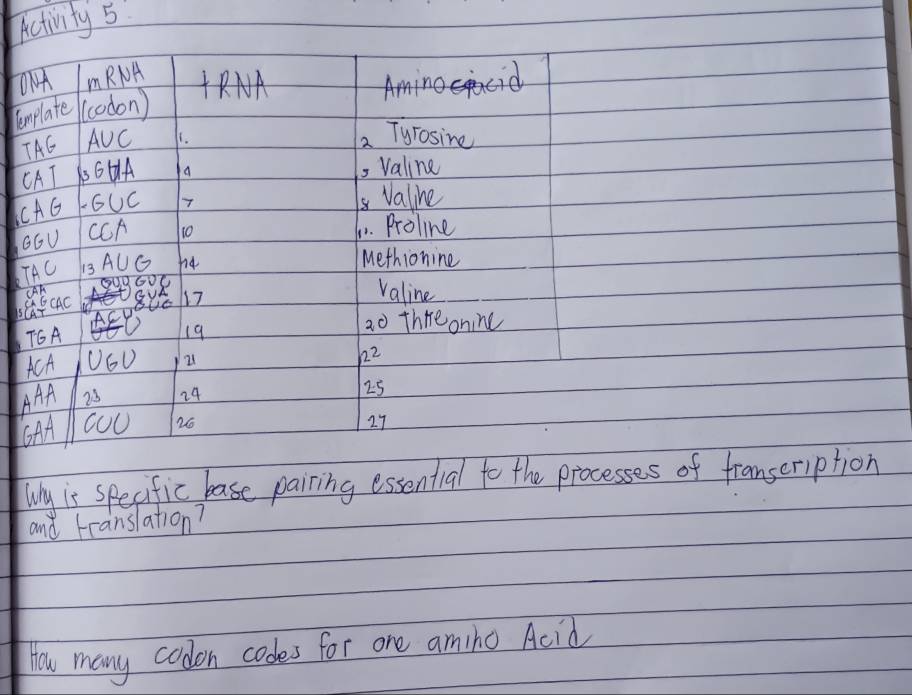 Activity 5
DNA Template mRNA (codon) tRNA Amino acid
TAG AUC 1. 2 Tyrosine
CAT 3 GUA 4 5 Valine
CAG GUC 7 8 Valine
GGU CCA 10 11. Proline
TAC 13 AUG 14 Methionine
CAA CAG CAT CAC GUU GUC GUA GUG 17 Valine
TGA ACU 19 20 Threonine
ACA UGU 21 22
AAA 23 24 25
GAA CUU 26 27
Why is specific base pairing essential to the processes of transcription
and translation?
How many codon codes for one amino Acid